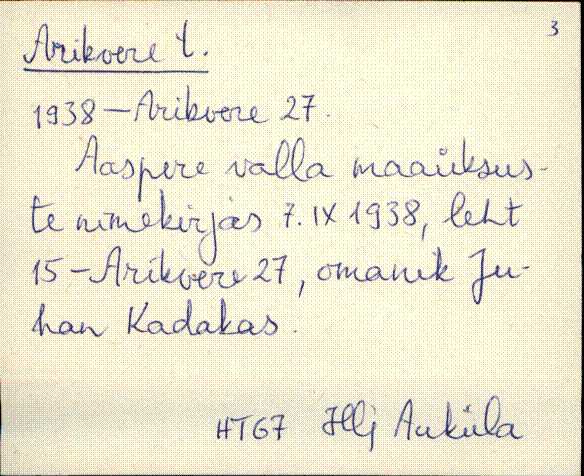 3
Arikvere t.
1938 – Arikvere 27.
Aaspere valla maaüksus-
te nimekirjas 7. IX 1938, leht
15 – Arikvere 27, omanik Ju-
han Kadakas.
HTG7 Illj Auküla